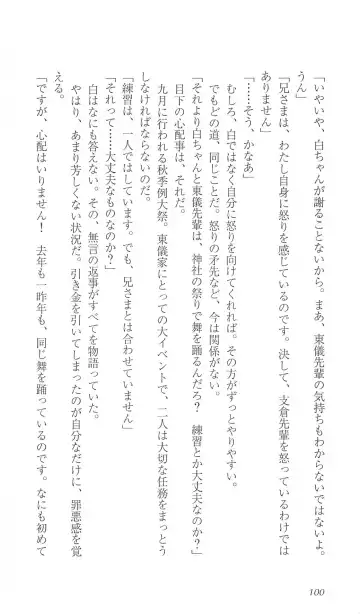 「いやいや、白ちゃんが謝ることないから。まあ、東儀先輩の気持ちもわからないではないよ。
うん」
「兄さまは、わたし自身に怒りを感じているのです。決して、支倉先輩を怒っているわけでは
ありません」
「……そう、かなあ」
むしろ、白ではなく自分に怒りを向けてくれれば。その方がずっとやりやすい。
でもどの道、同じことだ。怒りの矛先など、今は関係がない。
「それより白ちゃんと東儀先輩は、神社の祭りで舞を踊るんだろ？　練習とか大丈夫なのか？」
目下の心配事は、それだ。
九月に行われる秋季例大祭。東儀家にとっての大イベントで、二人は大切な任務をまっとう
しなければならないのだ。
「練習は、一人ではしています。でも、兄さまとは合わせていません」
「それって……大丈夫なものなのか？」
白はなにも答えない。その、無言の返事がすべてを物語っていた。
やはり、あまり芳しくない状況だ。引き金を引いてしまったのが自分なだけに、罪悪感を覚
える。
「ですが、心配はいりません！　去年も一昨年も、同じ舞を踊っているのです。なにも初めて
100